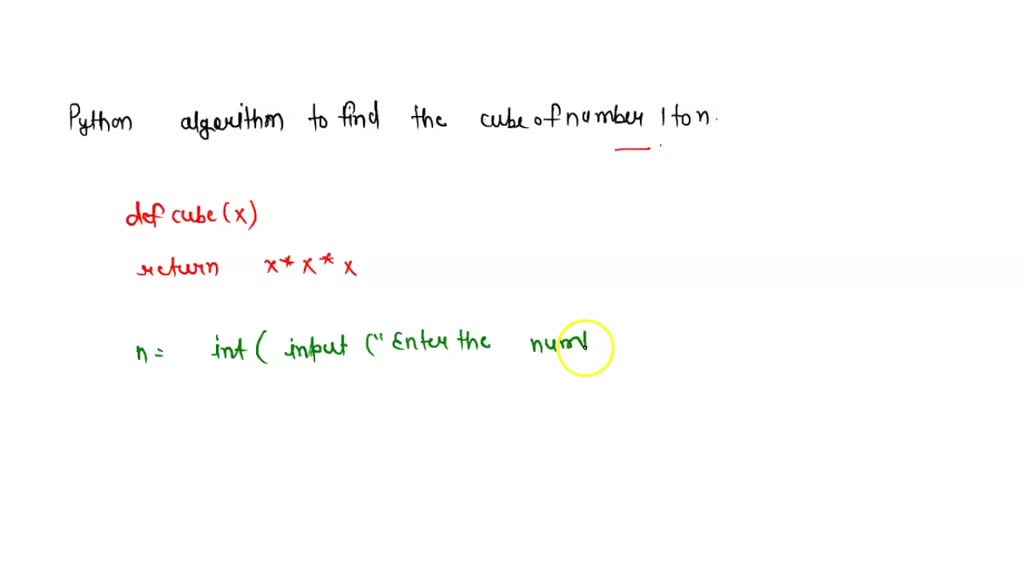 Python algorithm to find the cube of number 1 to n.
def cube (x)
return x * x * x
n = int ( input (" Enter the num